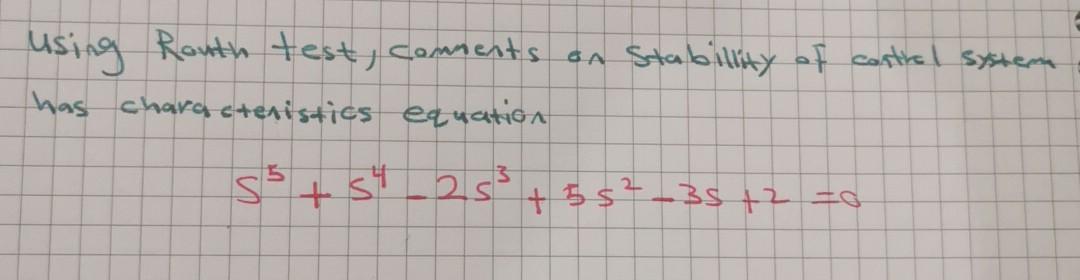 Using Routh test, comments on Stabillity of control system
has characteristics equation
S⁵ + S⁴ - 2S³ + 5S² - 3S + 2 = 0